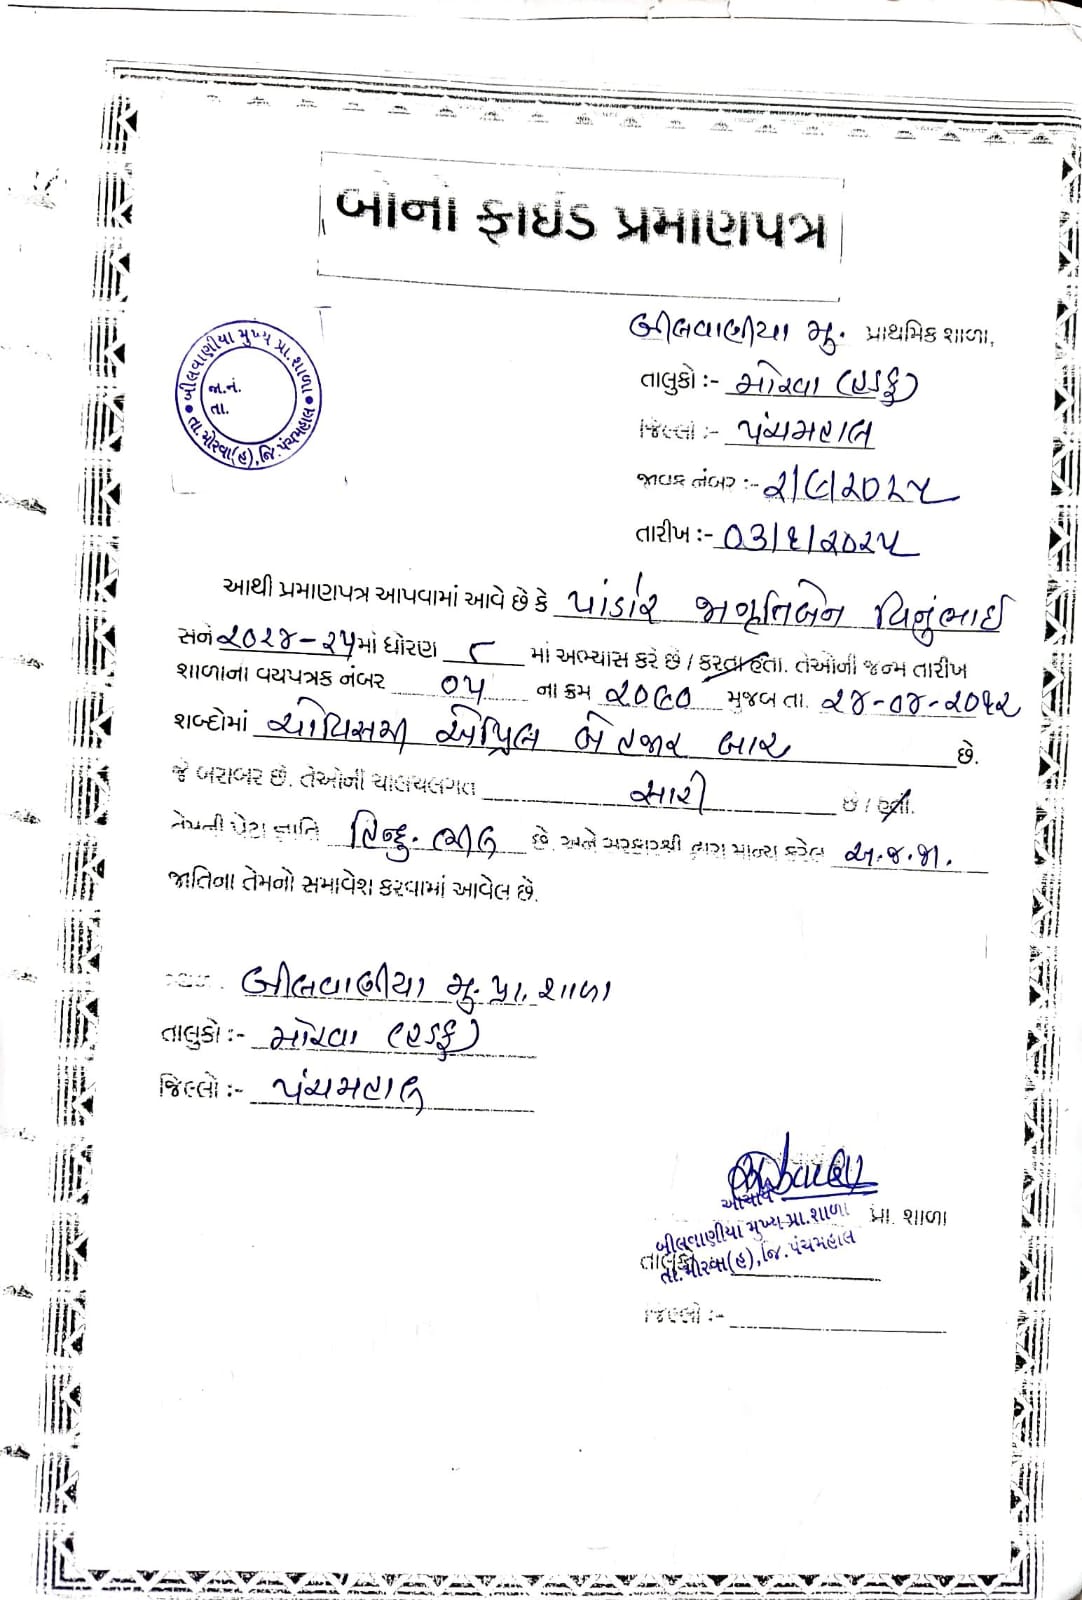 બોનો ફાઇડ પ્રમાણપત્ર
બીલવાણીયા મુખ્ય પ્રા.શાળા
જા.નં.
તા.
તા.મોરવા(હ),જિ.પંચમહાલ
બીલવાણીયા મુ. પ્રાથમિક શાળા,
તાલુકો :- મોરવા (હડફ)
જિલ્લો :- પંચમહાલ
જાવક નંબર :-
તારીખ :- 03/૬/૨૦૨૫
આથી પ્રમાણપત્ર આપવામાં આવે છે કે પાંડોર જાગૃતિબેન વિનુભાઈ
સને ૨૦૨૪-૨૫માં ધોરણ ૮ માં અભ્યાસ કરે છે / કરતા હતા. તેઓની જન્મ તારીખ
શાળાના વયપત્રક નંબર ૦૫ ના ક્રમ ૨૦૯૦ મુજબ તા. ૨૪-૦૪-૨૦૧૨
શબ્દોમાં ચોવિસમી એપ્રિલ બે હજાર બાર છે.
જે બરાબર છે. તેઓની ચાલચલગત સારી છે / હતા.
તેમની પેટા જ્ઞાતિ હિન્દુ. ભીલ છે. અને સરકારશ્રી દ્વારા માન્ય કરેલ અ.જ.જા.
જાતિના તેમનો સમાવેશ કરવામાં આવેલ છે.
બીલવાણીયા મુ. પ્રા. શાળા
તાલુકો :- મોરવા (હડફ)
જિલ્લો :- પંચમહાલ
આચાર્ય
બીલવાણીયા મુખ્ય પ્રા.શાળા પ્રા. શાળા
તા.મોરવા(હ),જિ.પંચમહાલ
જિલ્લો :-